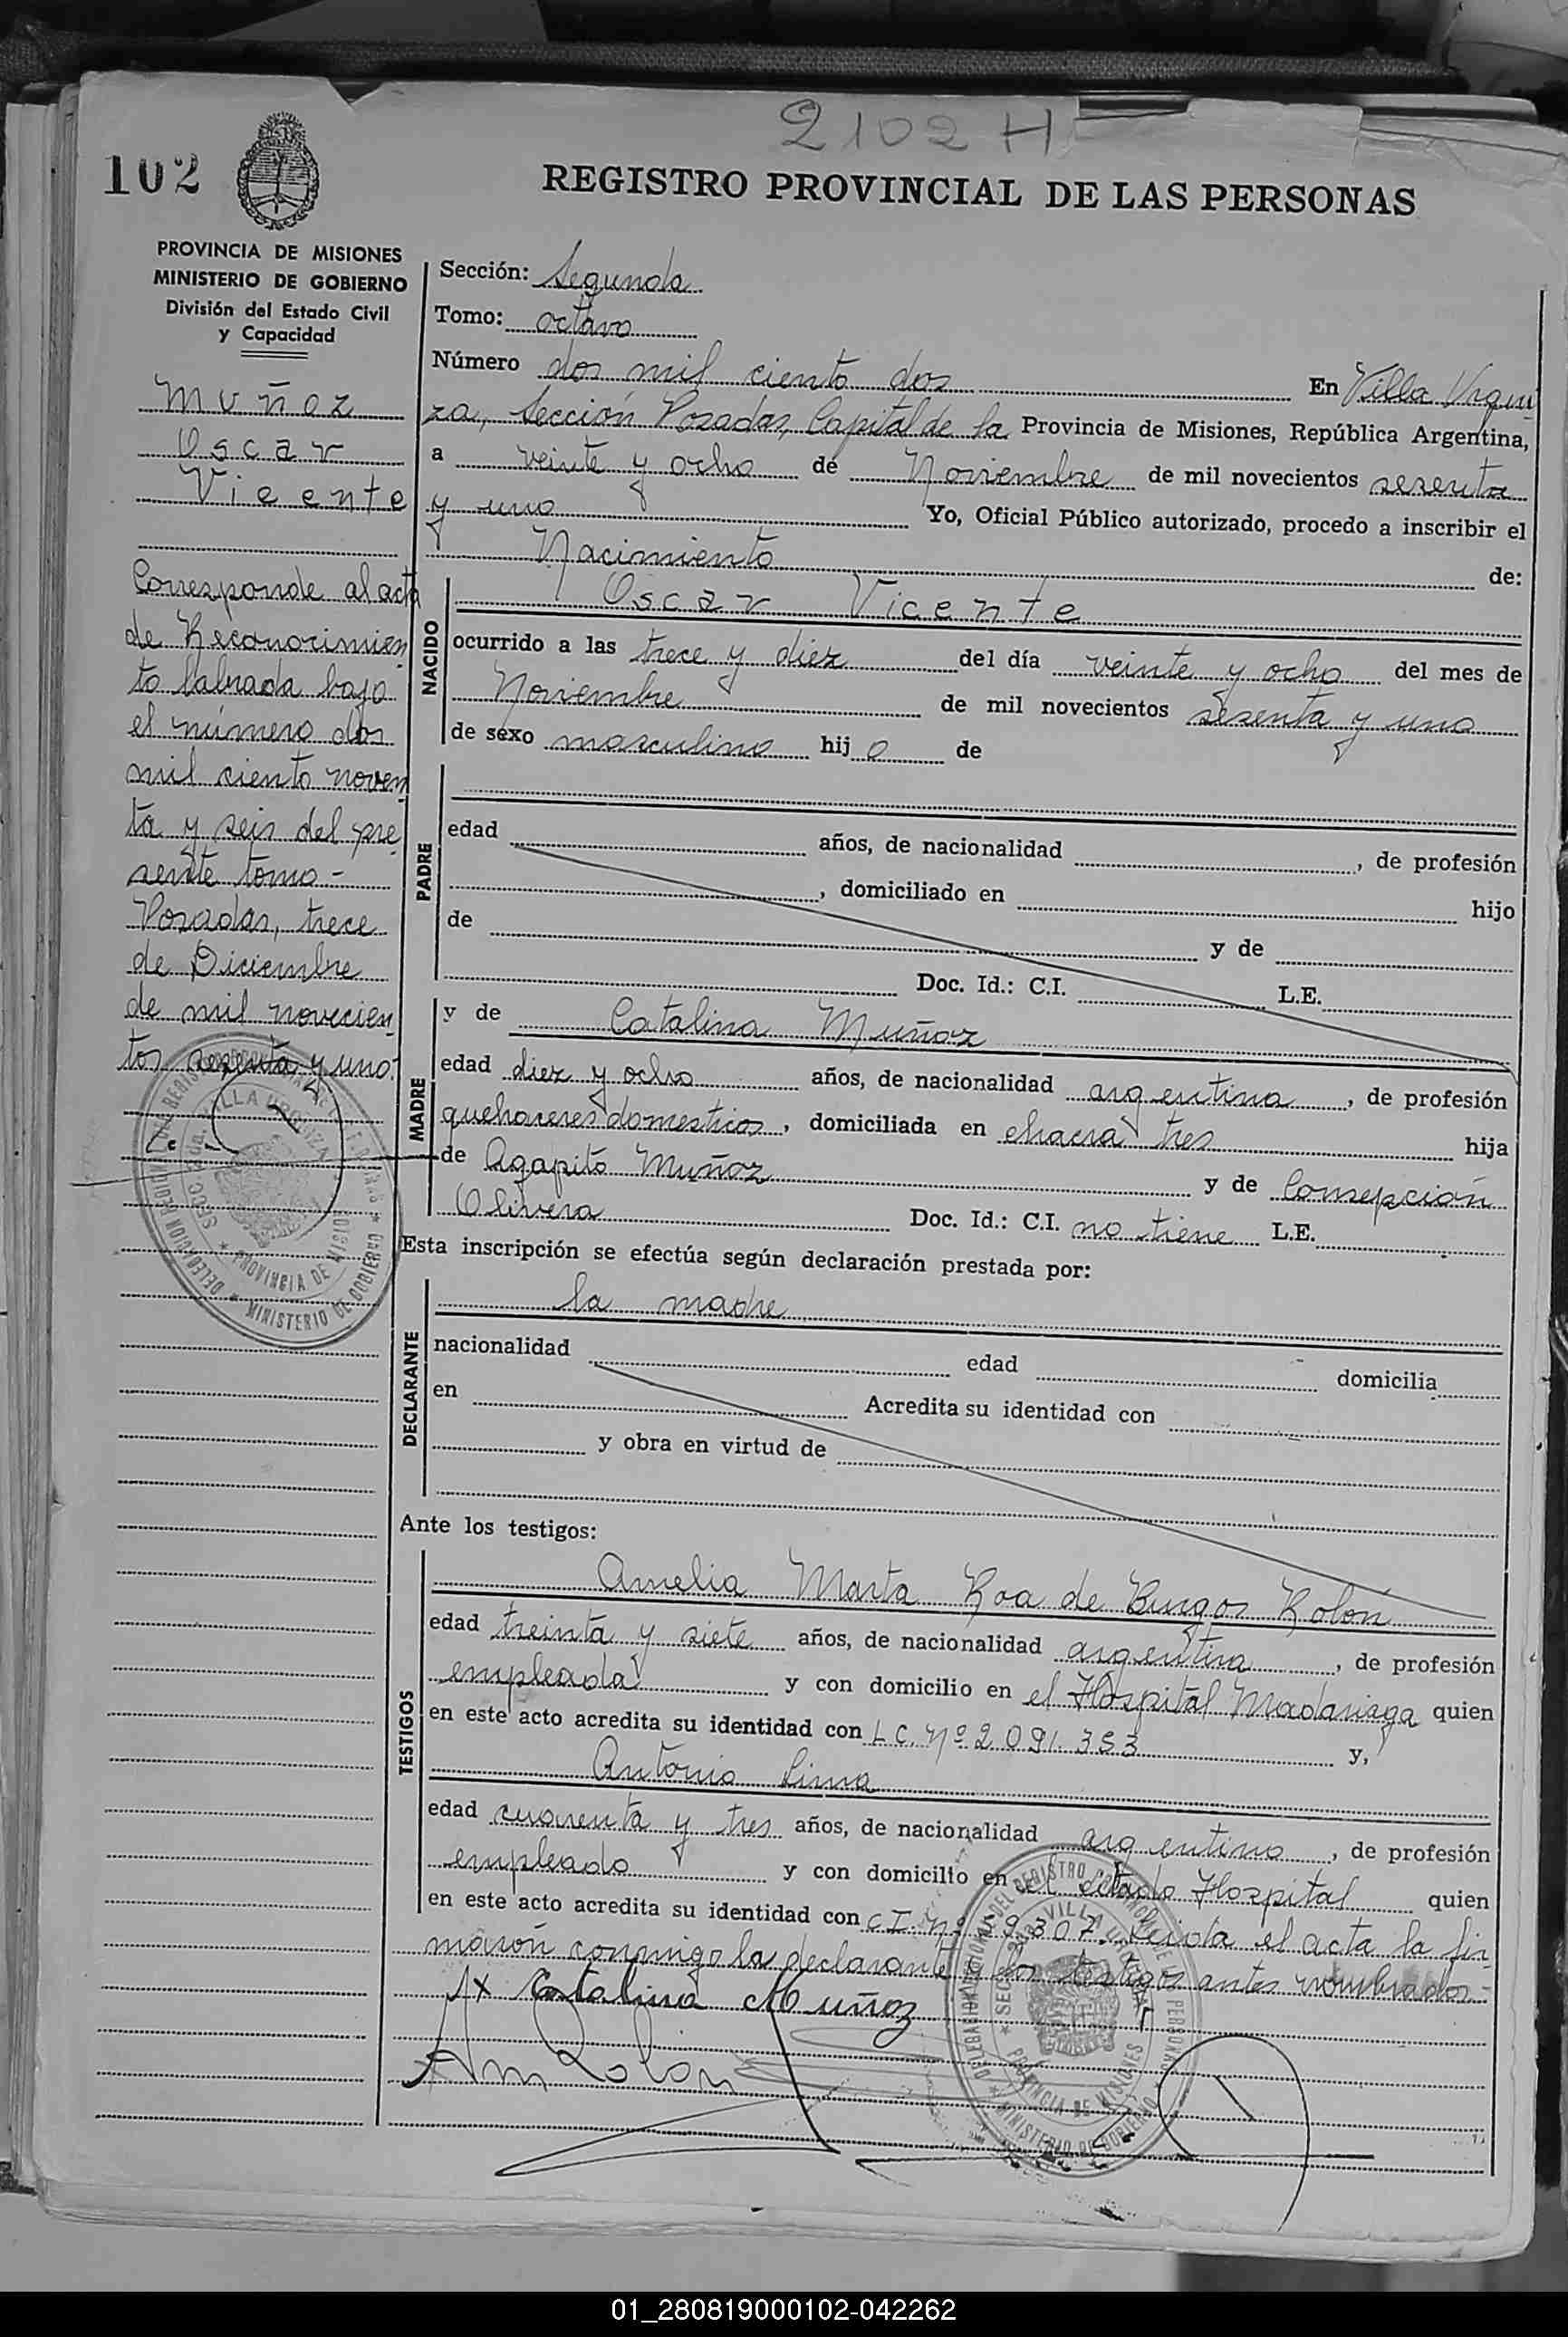 2102 H
102
REGISTRO PROVINCIAL DE LAS PERSONAS
PROVINCIA DE MISIONES
MINISTERIO DE GOBIERNO
División del Estado Civil
y Capacidad
Muñoz
Oscar
Vicente
Corresponde al acta
de Reconocimien
to labrada bajo
el número dos
mil ciento noven
ta y seis del pre
sente tomo -
Posadas, trece
de Diciembre
de mil novecien
tos sesenta y uno.
Sección: Segunda
Tomo: octavo
Número dos mil ciento dos En Villa Urqui
za, Sección Posadas, Capital de la Provincia de Misiones, República Argentina,
a veinte y ocho de Noviembre de mil novecientos sesenta
y uno Yo, Oficial Público autorizado, procedo a inscribir el
Nacimiento de:
NACIDO
Oscar Vicente
ocurrido a las trece y diez del día veinte y ocho del mes de
Noviembre de mil novecientos sesenta y uno
de sexo masculino hijo de
PADRE
edad años, de nacionalidad , de profesión
, domiciliado en hijo
de y de
Doc. Id.: C.I. L.E.
MADRE
y de Catalina Muñoz
edad diez y ocho años, de nacionalidad argentina, de profesión
quehaceres domesticos, domiciliada en chacra tres hija
de Agapito Muñoz y de Consepción
Olivera Doc. Id.: C.I. no tiene L.E.
Esta inscripción se efectúa según declaración prestada por:
DECLARANTE
la madre
nacionalidad edad domicilia
en Acredita su identidad con
y obra en virtud de
Ante los testigos:
TESTIGOS
Amelia Marta Roa de Burgos Rolón
edad treinta y siete años, de nacionalidad argentina, de profesión
empleada y con domicilio en el Hospital Madariaga quien
en este acto acredita su identidad con L C. Nº 2.091.353 y,
Antonio Lima
edad cuarenta y tres años, de nacionalidad argentino, de profesión
empleado y con domicilio en el citado Hospital quien
en este acto acredita su identidad con C.I. Nº 59.307. Leida el acta la fir
maron conmigo la declarante y los testigos antes nombrados.-
Catalina Muñoz
Am Rolon
VILLA URQUIZA
PROVINCIA DE MISIONES
MINISTERIO DE GOBIERNO
01_280819000102-042262